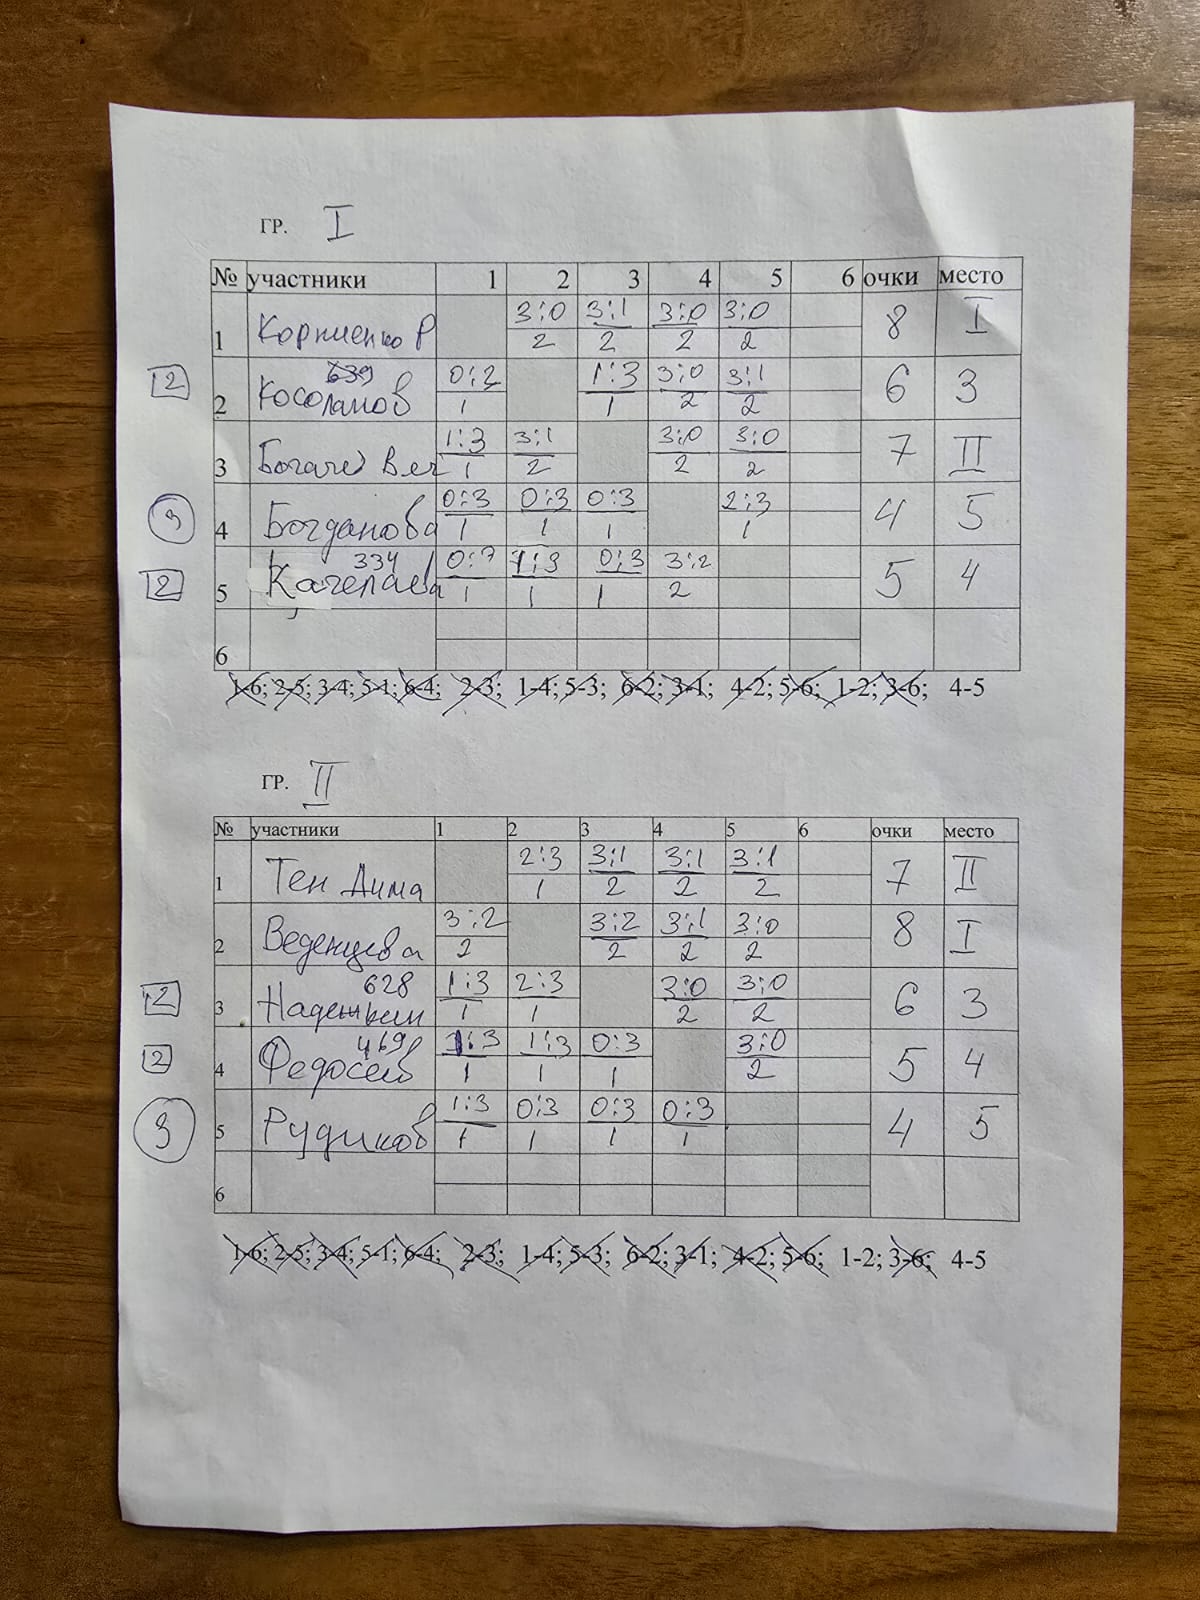 ГР. I
№ участники 1 2 3 4 5 6 очки место
1 Корниенко Р 3:0 3:1 3:0 3:0 8 I
2 2 2 2
2 639
2 Косолапов 0:3 1:3 3:0 3:1 6 3
1 1 2 2
3 Богачев Веч 1:3 3:1 3:0 3:0 7 II
1 2 2 2
9 4 Богданова 0:3 0:3 0:3 2:3 4 5
1 1 1 1
2 334
5 0:3 1:3 0:3 3:2 5 4
1 1 1 2
6
1-6; 2-5; 3-4; 5-1; 6-4; 2-3; 1-4; 5-3; 6-2; 3-1; 4-2; 5-6; 1-2; 3-6; 4-5
ГР. II
№ участники 1 2 3 4 5 6 очки место
1 Тен Дима 2:3 3:1 3:1 3:1 7 II
1 2 2 2
2 Веденцева 3:2 3:2 3:1 3:0 8 I
2 2 2 2
2 628
3 Наденькин 1:3 2:3 3:0 3:0 6 3
1 1 2 2
2 469
4 Федосеев 1:3 1:3 0:3 3:0 5 4
1 1 1 2
9 5 Рудиков 1:3 0:3 0:3 0:3 4 5
1 1 1 1
6
1-6; 2-5; 3-4; 5-1; 6-4; 2-3; 1-4; 5-3; 6-2; 3-1; 4-2; 5-6; 1-2; 3-6; 4-5